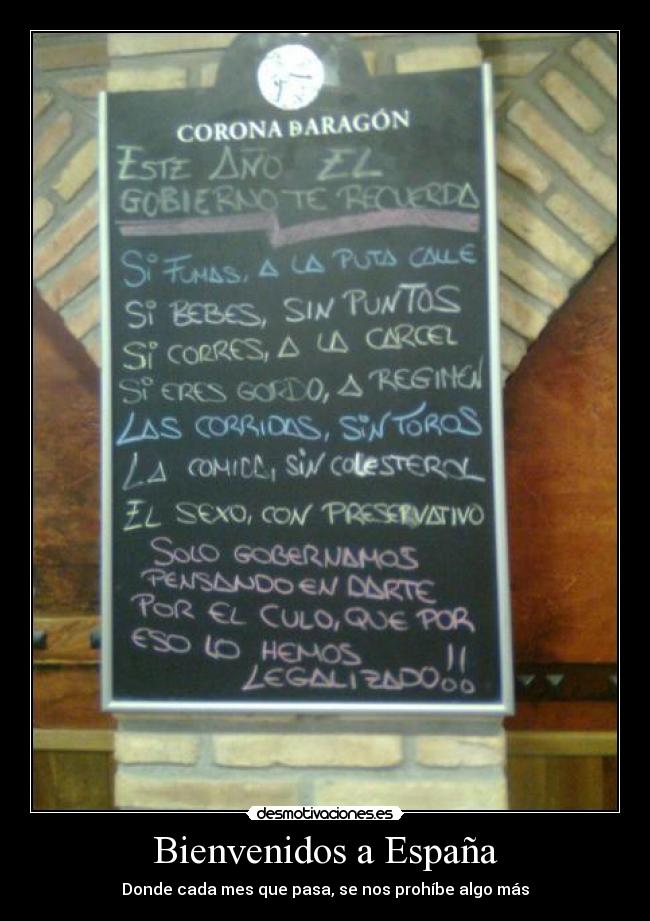 CORONA DARAGÓN
ESTE AÑO EL
GOBIERNO TE RECUERDA
Si FUMAS, A LA PUTA CALLE
Si BEBES, SIN PUNTOS
Si CORRES, A LA CARCEL
Si ERES GORDO, A REGIMEN
LAS CORRIDAS, SiN TOROS
LA COMIDA, SiN COLESTEROL
EL SEXO, CON PRESERVATIVO
SOLO GOBERNAMOS
PENSANDO EN DARTE
POR EL CULO, QUE POR
ESO LO HEMOS
LEGALIZADO!!
desmotivaciones.es
Bienvenidos a España
Donde cada mes que pasa, se nos prohíbe algo más